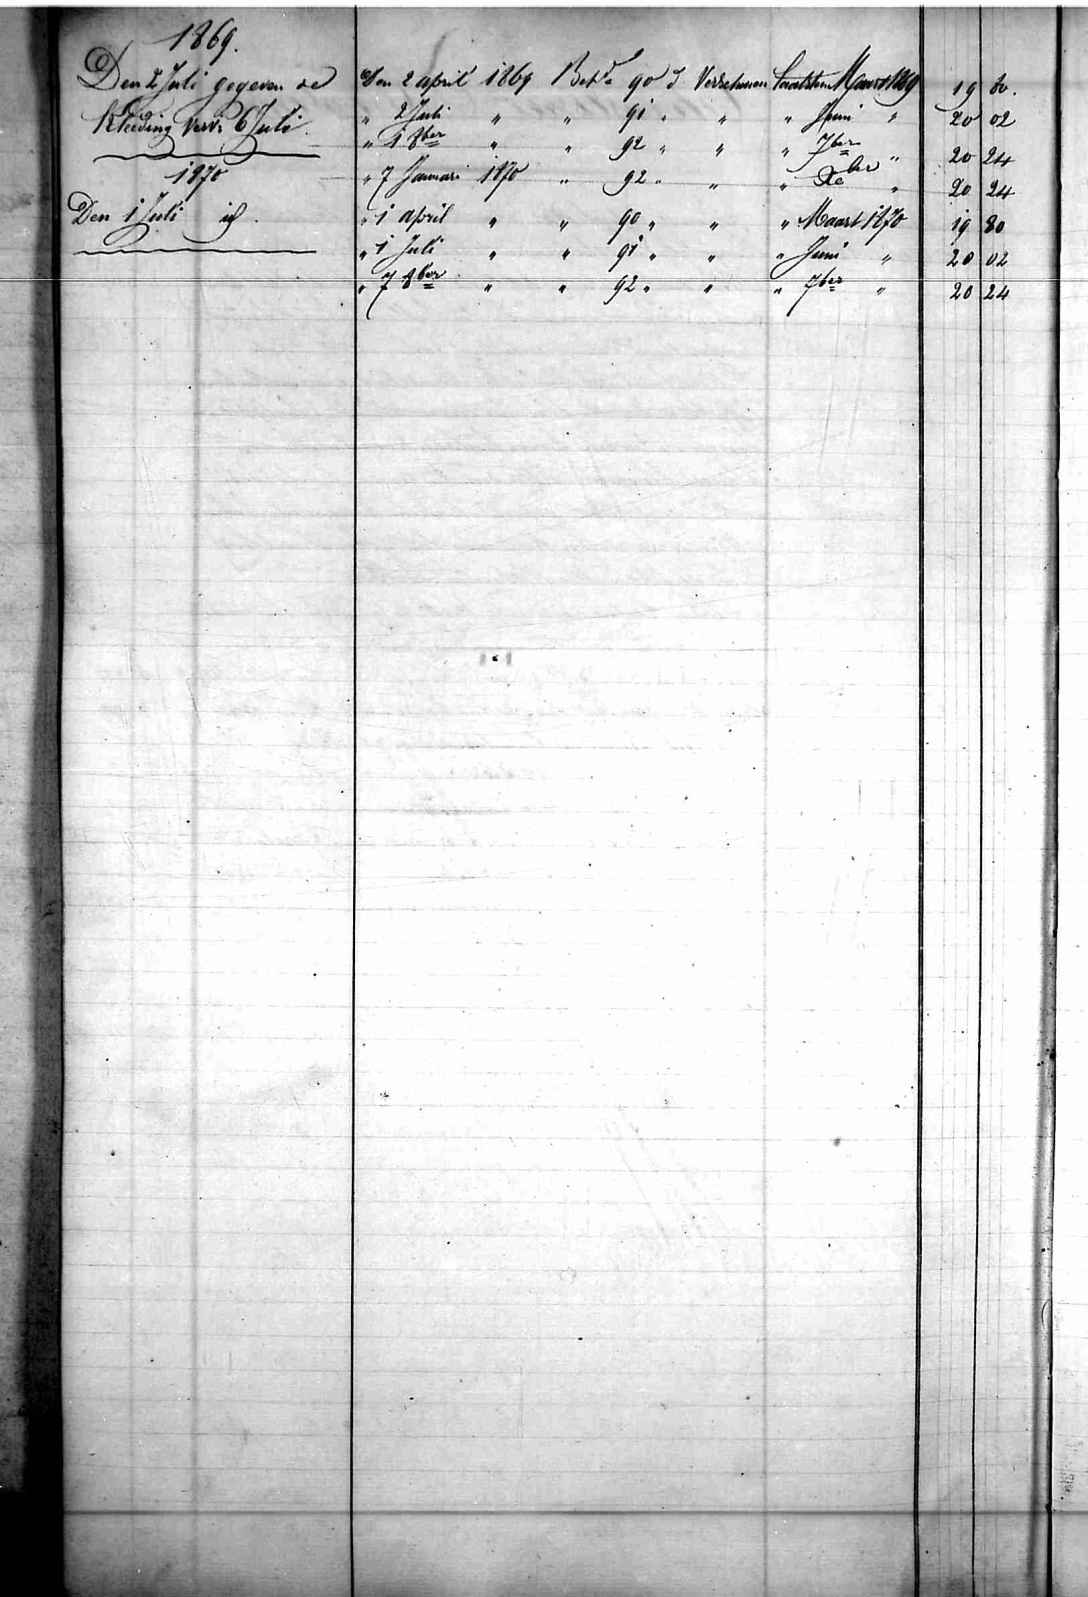 1869.
Den 2 Juli gegeven de
Kleeding Verv: 6 Juli.
1870
Den 1 Juli id .
Den 2 april 1869 Bet.d 90 d Maart 1869 19 80.
" 2 Juli " " 91 " " " Juni " 20 02
" 1 8ber " " 92 " " " 7ber " 20 24
" 7 Januari 1870 " 92 " " " Xber " 20 24
" 1 april " " 90 " " " Maart 1870 19 80
" 1 Juli " " 91 " " " Juni " 20 02
" 7 8ber " " 92 " " " 7ber " 20 24